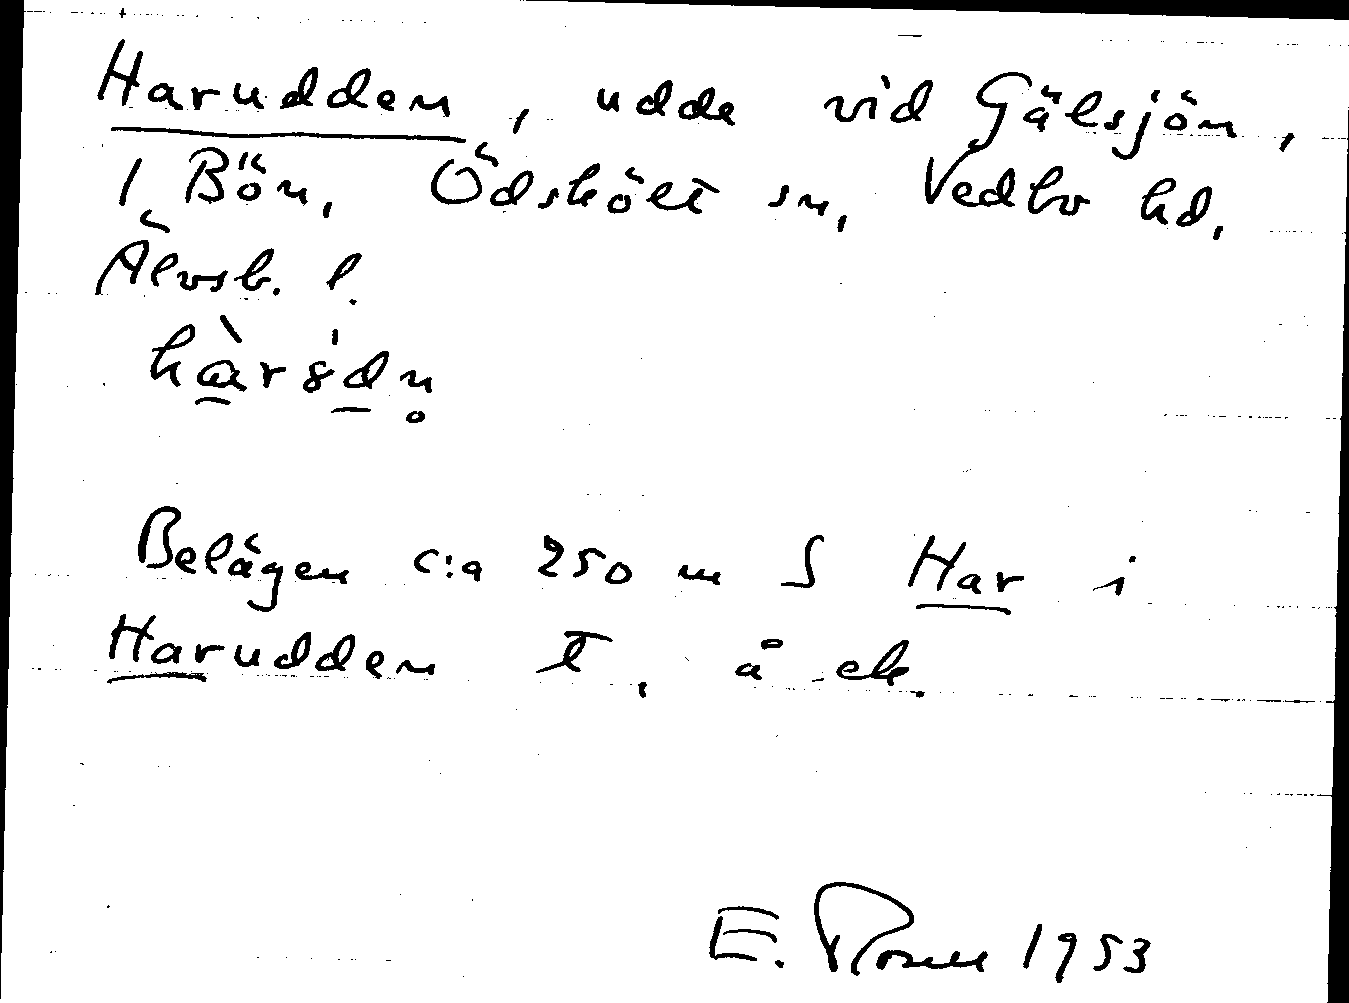 Harudden, udde vid Gälsjön,
1 Bön, Ödskölt sn, Vedbo hd,
Älvsb. l.
Belägen c:a 250 m S Har i
Harudden T, å ek.
E. Rosell 1953